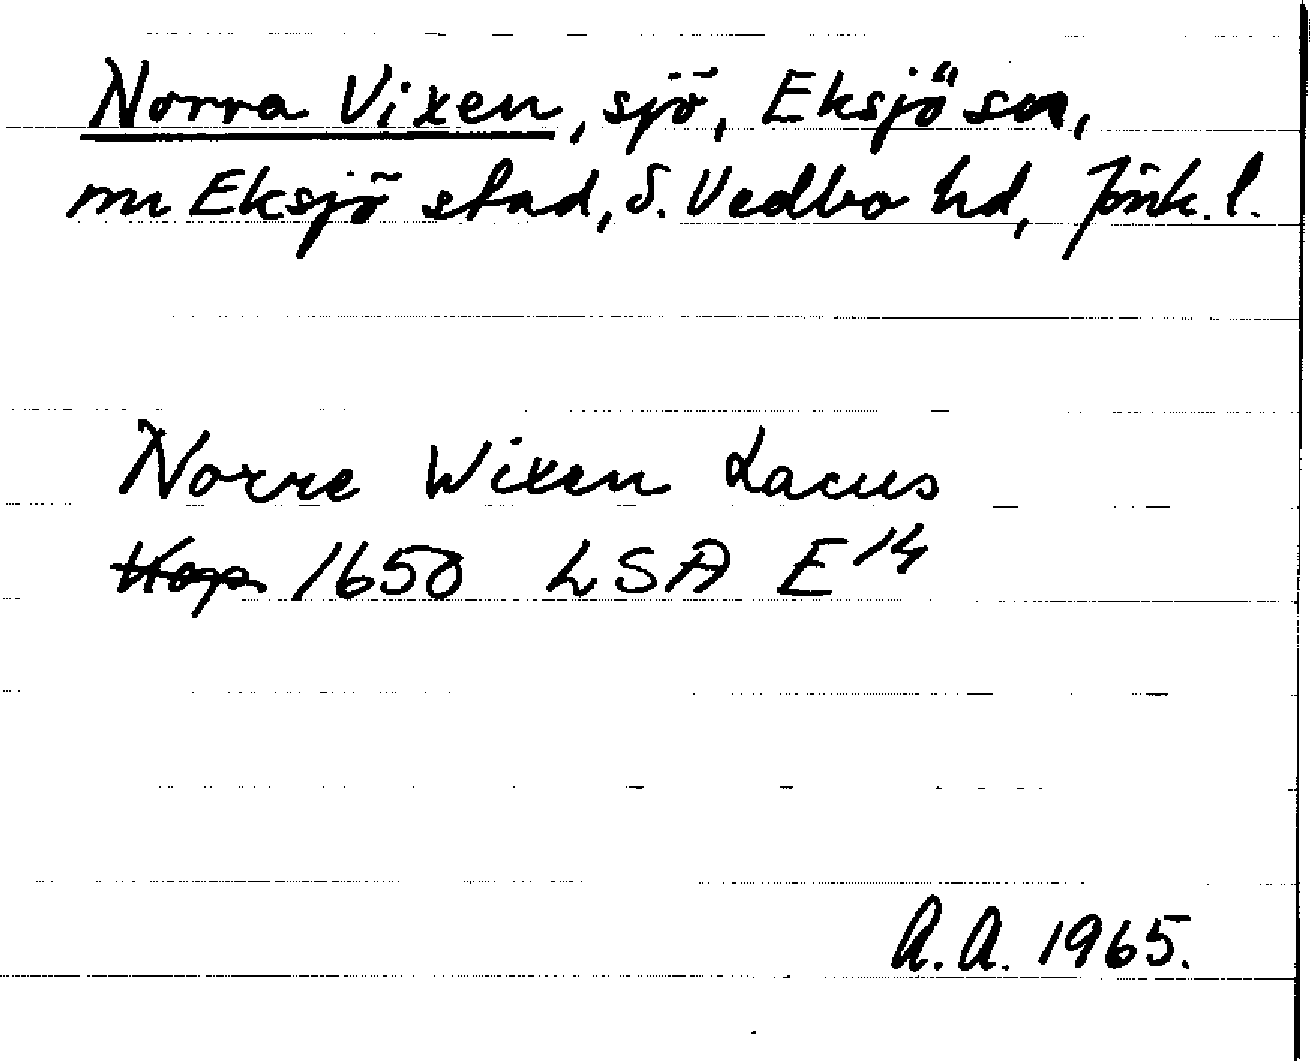 Norra Vixen, sjö, Eksjö sn,
nu Eksjö stad, S. Vedbo hd, Jönk. l.
Norre Wixen Lacus
Kop 1650 LSA E 14
A.A. 1965.